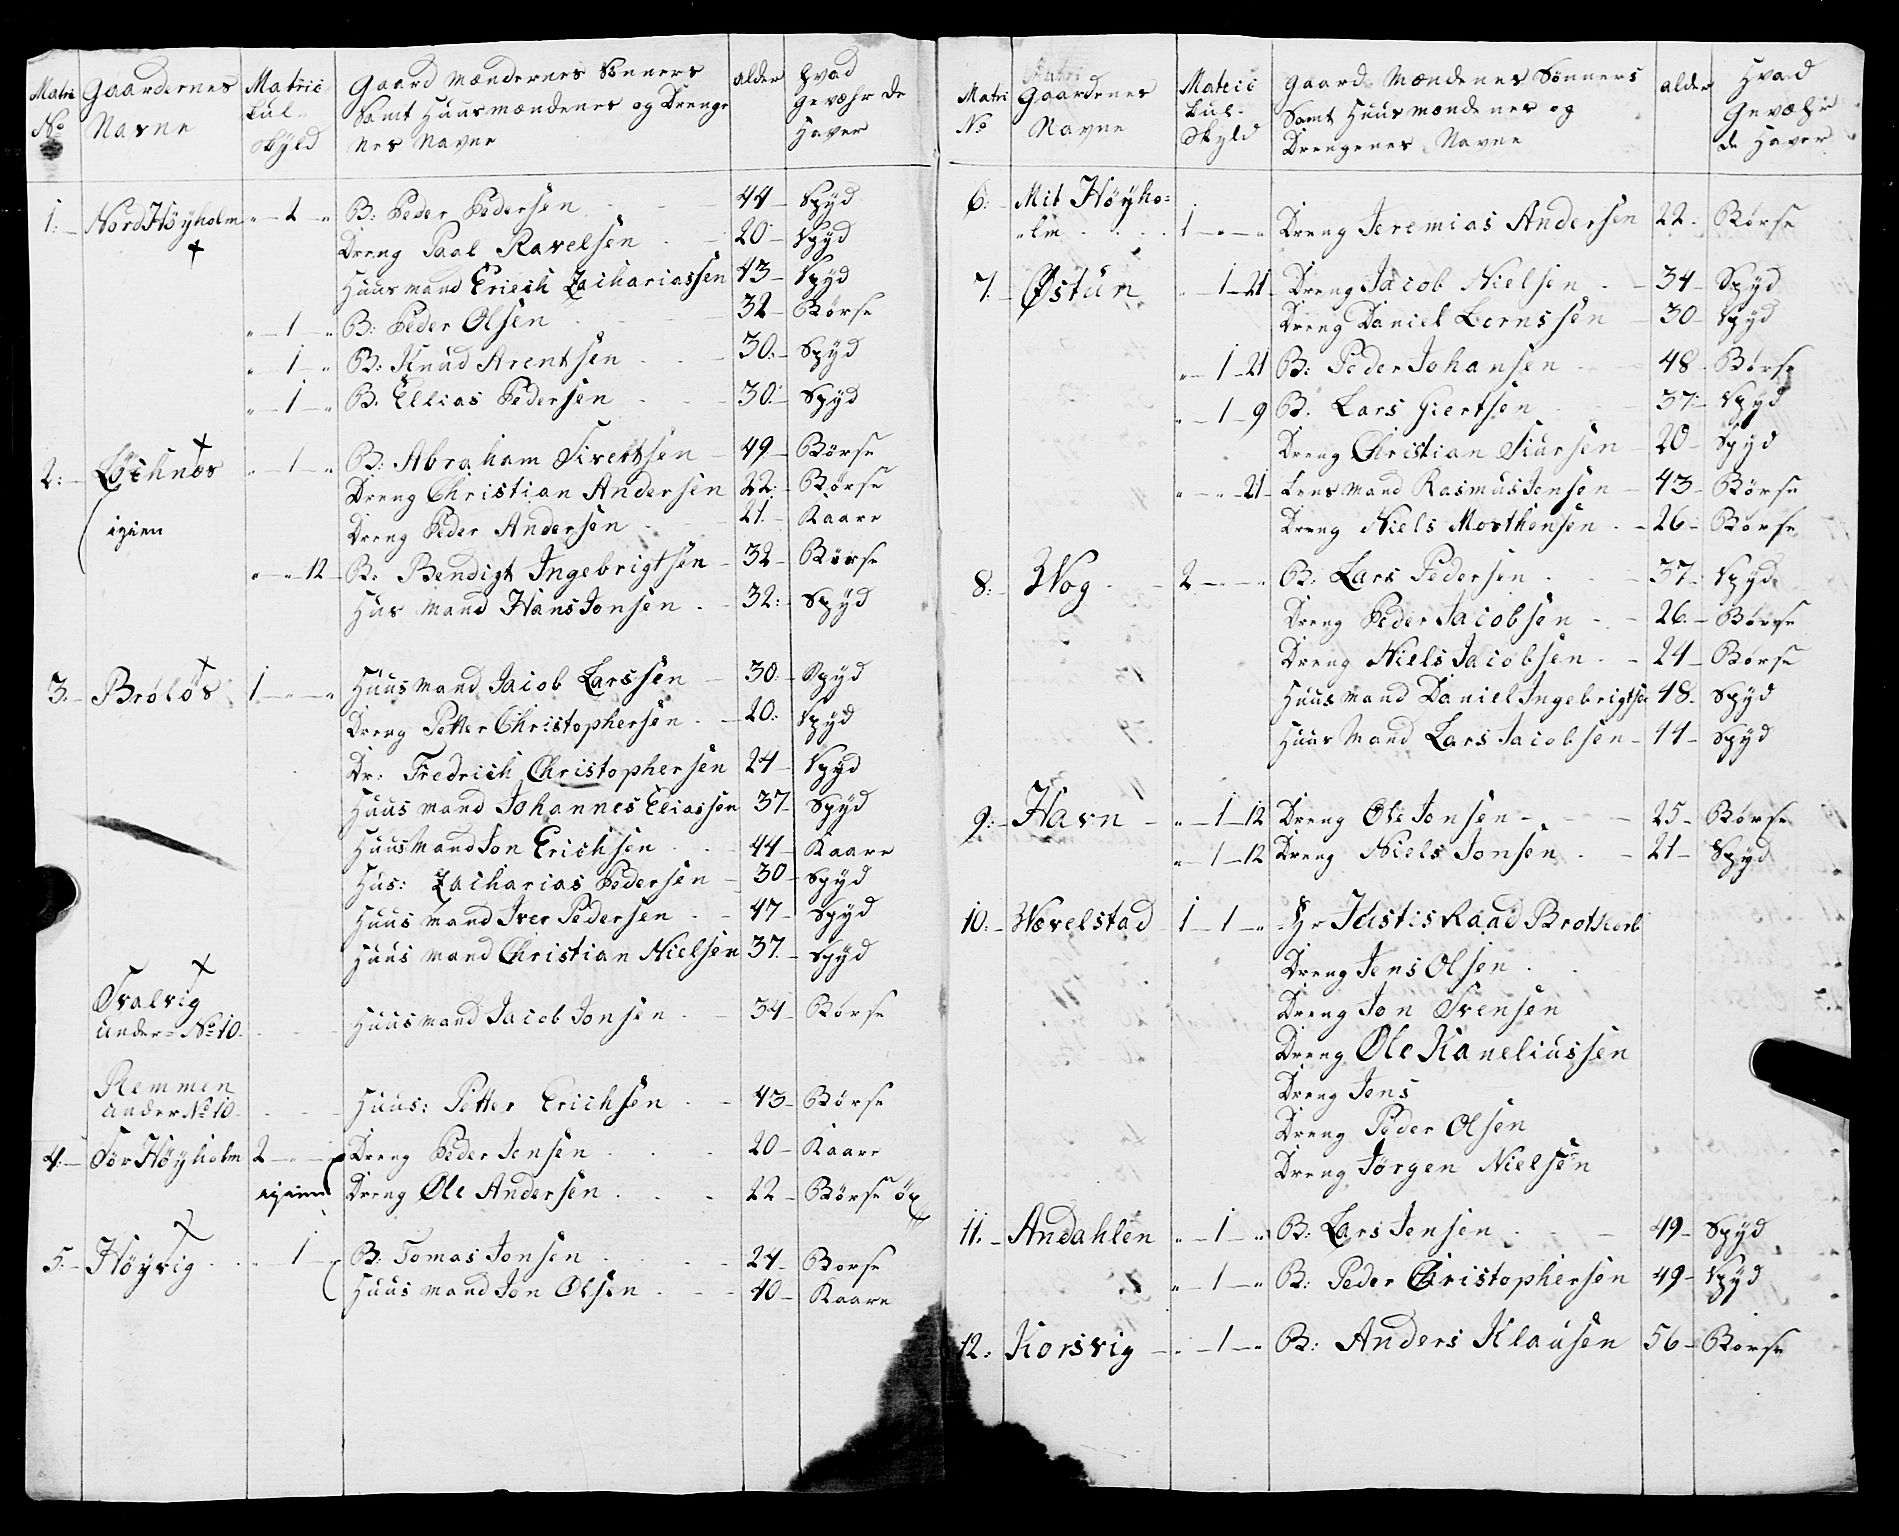 Matri No | Gaardernes Navne | Matric kul skÿld | Gaard Mændernes Sønners Samt Huusmændenes og Drenge nes Navne | alder | hvad Gevæhr de Haver
1: NordHøyholm „ 2 „ B: Peder Pedersen 44 Spÿd
Dreng Paal Ravelsen 20 Spÿd
Huusmand Eriech Zachariassen 43 Spÿd
„ 1 „ B: Peder Olsen 32 Børse
„ 1 „ B: Knud Arentsen 30: Spÿd
„ 1 „ B: Ellias Pedersen 30: Spÿd
2: „ 1 „ B: Abraham Sivertsen 49 Børse
Dreng Christian Andersen 22: Børse
igien Dreng Peder Andersen 21. Kaare
„ „ 12 B: Bendigt Ingebrigtsen 32 Børse
Hus mand Hans Jonsen 32: Spÿd
3. Brøløs 1 „ „ Huusmand Jacob Larssen 30: Spÿd
Dreng Petter Christophersen 20: Spÿd
Dr: Fredrich Christophersen 24 Spÿd
Huusmand Johannes Eliassen 37 Spÿd
Huusmand Jon Erichsen 44 Kaare
Hus: Zacharias Pedersen 30 Spÿd
Huusmand Iver Pedersen 47 Spÿd
Huus mand Christian Nielsen 37. Spÿd
Svalvig
under No 10. Huusmand Jacob Jonsen 34 Børse
Remmen
under No 10. Huus: Petter Erichsen 43 Børse
4. Sør Høyholm 2 „ Dreng Peder Jensen 20 Kaare
igien Dreng Ole Andersen 22 Børse öx
5. Høyvig „ 1 B: Tomas Jonsen 24 Borse
Huus mand Jon Olsen 40 Kaare
Matri No | Gaardenes Navne | Matric kul- Skyld | Gaard Mændenes Sønners Samt Huusmændenes og Drengenes Navne | alder | Hvad Gevæhr de Haver
6: Mit Høyho=
„lm 1 „ „ Dreng Jeremias Andersen 22. Børse
7. Østun „ 1 21 Dreng Jacob Nielsen 34 Spÿd
Dreng Daniel Lornssen 30 Spÿd
„ 1 21 B: Peder Johansen 48 Børse
„ 1 9 B. Lars Giertsen 37: Spÿd
Dreng Christian Siursen 20 Spÿd
„ „ 21 Lensmand Rasmus Jensen 43 Børse
Dreng Niels Morthensen 26 Børse
8: Wog 2 „ „ B: Lars Pedersen 37. Spÿd
Dreng Peder Jacobsen 26. Børse
Dreng Niels Jacobsen 24 Børse
Huusmand Daniel Ingebrigtsen 48. Spÿd
Huus Mand Lars Jacobsen 44 Spÿd
9: Havn „ 1 12 Dreng Ole Jonsen 25 Børse
„ 1 12 Dreng Niels Jonsen 21 Spÿd
10: Wevelstad 1 1 „ Hr Justis Raad Brotkorb
Dreng Jens Olsen
Dreng Jon Svensen
Dreng Ole Kaneliussen
Dreng Jens
Dreng Peder Olsen
Dreng Jørgen Nielsen
11. Andahlen „ 1 „ B: Lars Jensen 49 Spÿd
„ 1 „ B: Peder Christophersen 49 Spÿd
12: Korsvig „ 1 „ B: Anders Klausen 56 Børse